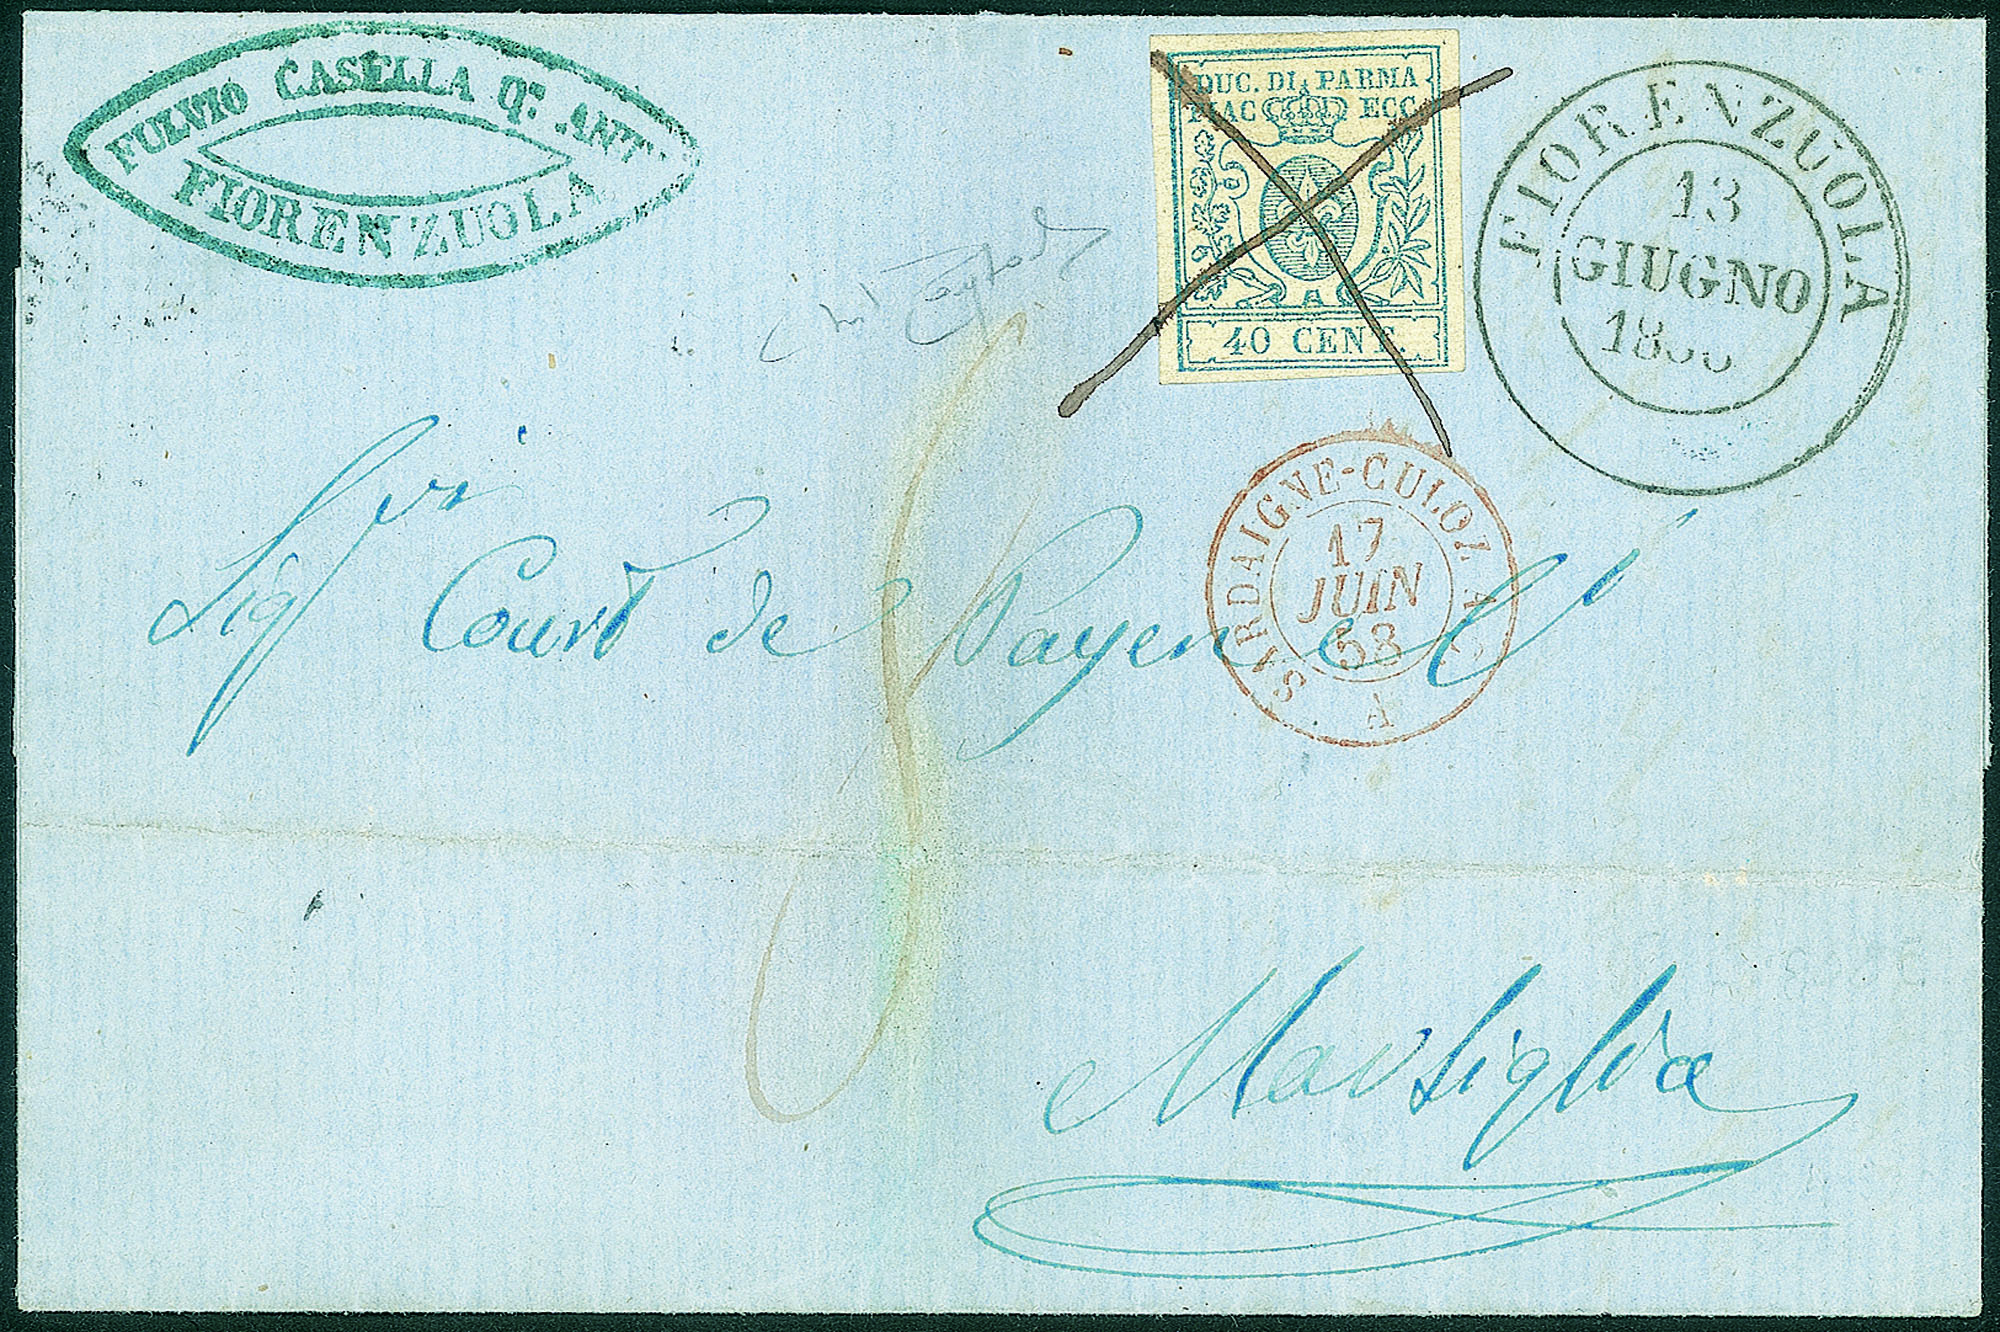 FULVIO CASELLA Qm. ANT.
FIORENZUOLA
DUC. DI PARMA
PIAC ECC.
40 CENT.
FIORENZUOLA
13
GIUGNO
SARDAIGNE-CULOZ A
17
JUIN
58
Sigri Court de Payen et
Marsiglia